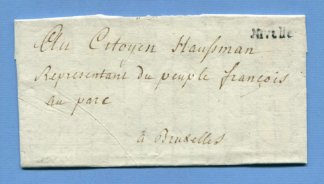 Nivelle
Au Citoyen Haussman
Representant du peuple françois
au parc
à Bruxelles